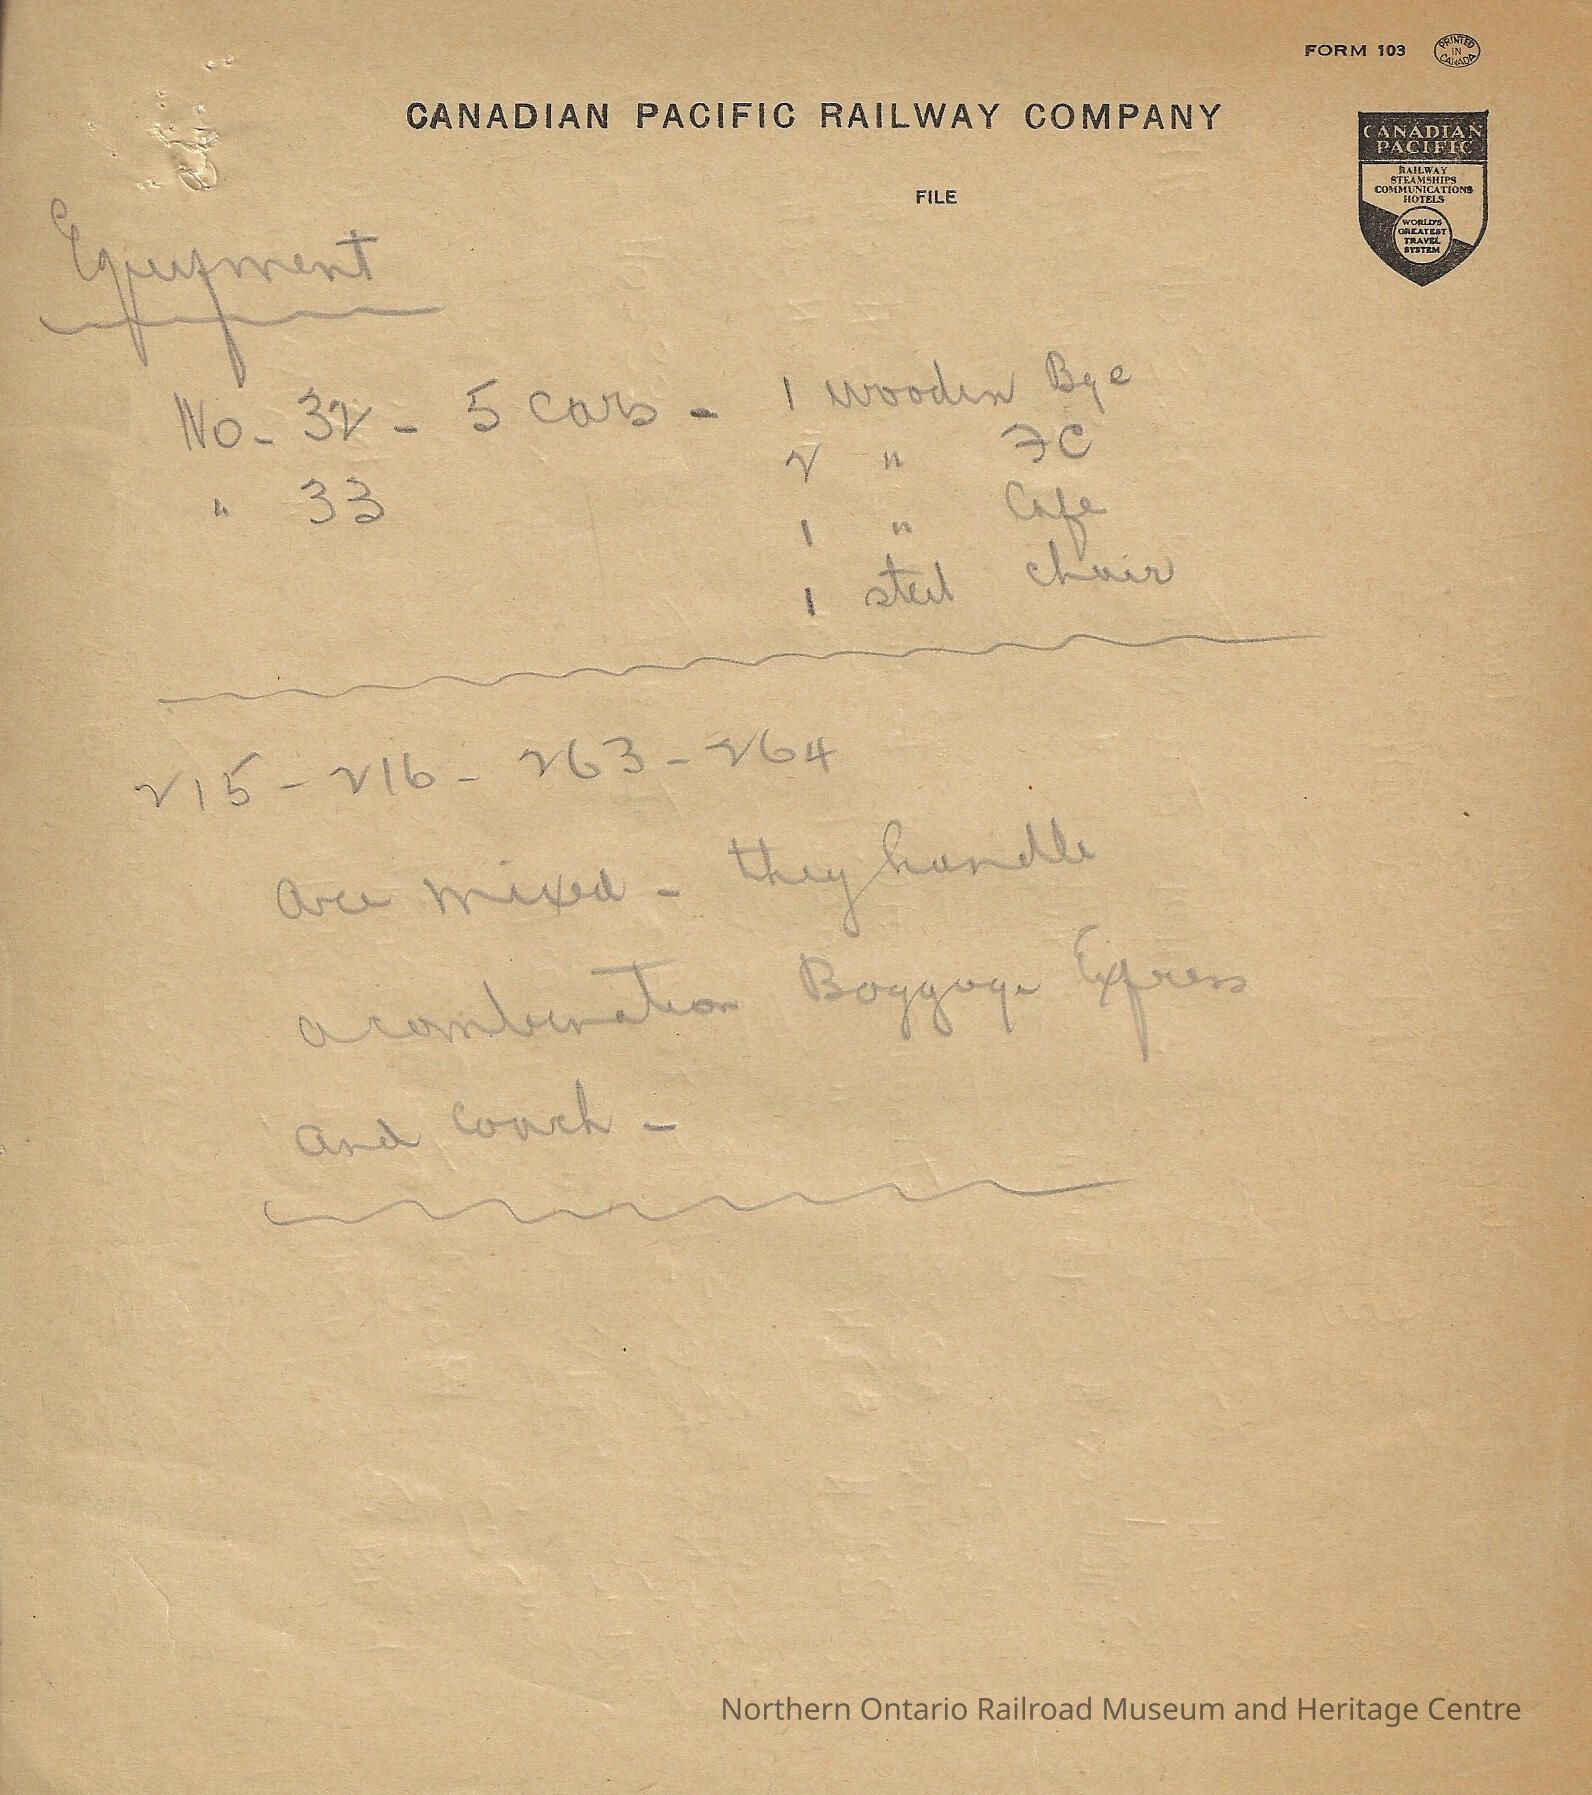 FORM 103
PRINTED IN CANADA
CANADIAN PACIFIC RAILWAY COMPANY
CANADIAN
PACIFIC
RAILWAY
STEAMSHIPS
COMMUNICATIONS
HOTELS
WORLD'S
GREATEST
TRAVEL
SYSTEM
FILE
Equipment
No- 32 - 5 cars - 1 wooden Bge
" 33
2 " FC
1 " Cafe
1 steel chair
215 - 216 - 263 - 264
are mixed - they handle
a combination Baggage Express
and coach -
Northern Ontario Railroad Museum and Heritage Centre